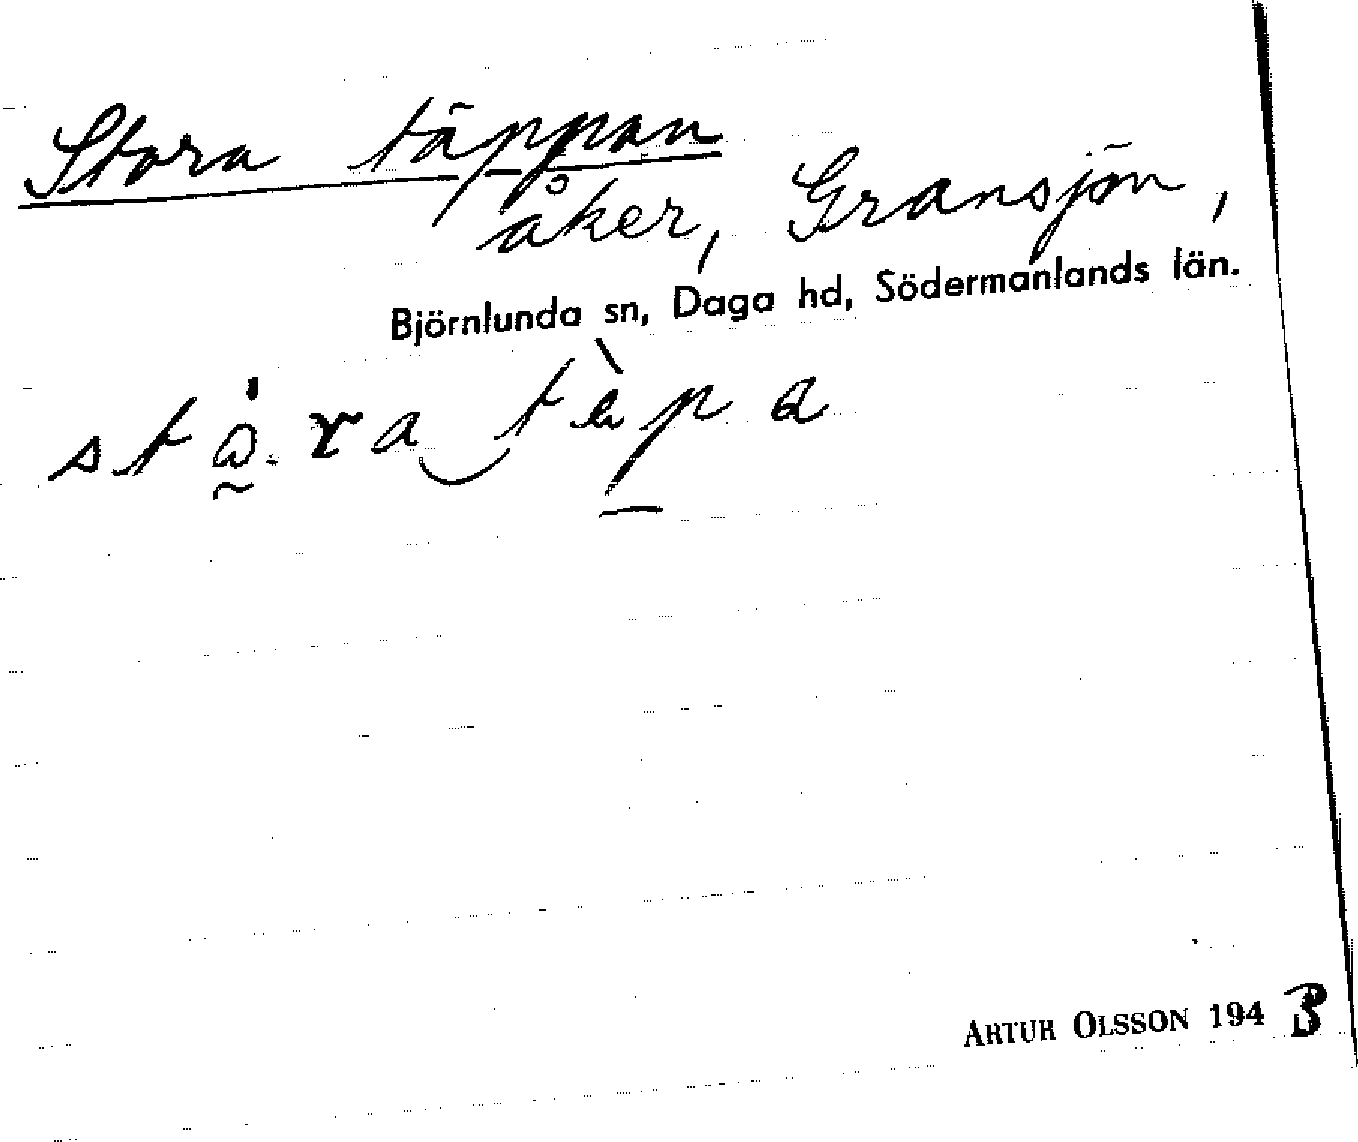 Stora täppan
åker, Gransjön,
Björnlunda sn, Daga hd, Södermanlands län.
ARTUR OLSSON 1943